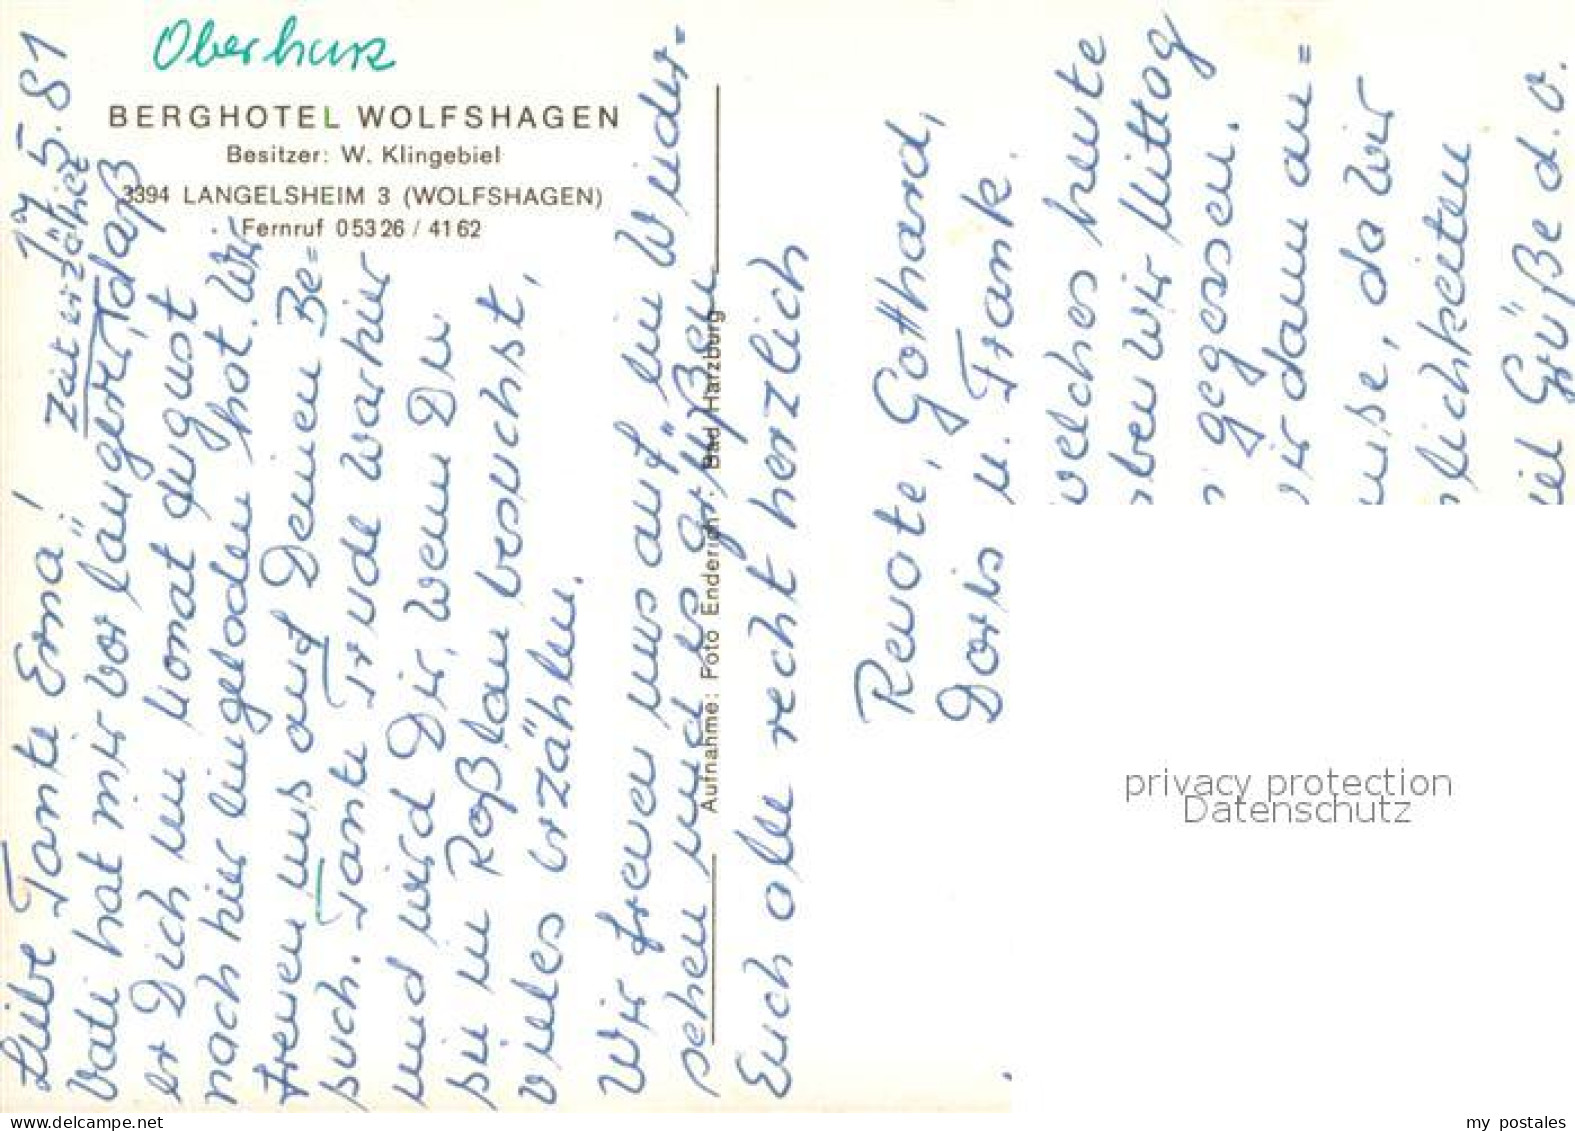 Oberharz
BERGHOTEL WOLFSHAGEN
Besitzer: W. Klingebiel
3394 LANGELSHEIM 3 (WOLFSHAGEN)
Fernruf 05326 / 4162
5.81
Liebe Tante Erna!
Vati hat mir vor längerer Zeit erzählt, daß
er Dich im Monat August
nach hier eingeladen hat. Wir
freuen uns auf Deinen Be=
such. Tante Trude war hier
und wird Dir, wenn Du
sie in Roßlau besuchst,
vieles erzählen.
Wir freuen uns auf ein Wieder=
sehen und es grüßen
Euch alle recht herzlich
Renate, Gothard,
Doris u. Frank.
Aufnahme: Foto Enderich · Bad Harzburg
welches heute
ben wir Mittag
gegessen.
ir dann an=
use, da wir
lichkeiten
iel Grüße d. O.
privacy protection
Datenschutz
oldthing.de
my postales